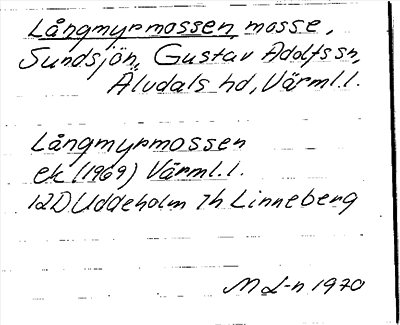 Långmyrmossen, mosse,
Sundsjön, Gustav Adolfs sn,
Älvdals hd, Värml. l.
Långmyrmossen
ek (1969) Värml. l.
12D Uddeholm 7h Linneberg
M L-n 1970